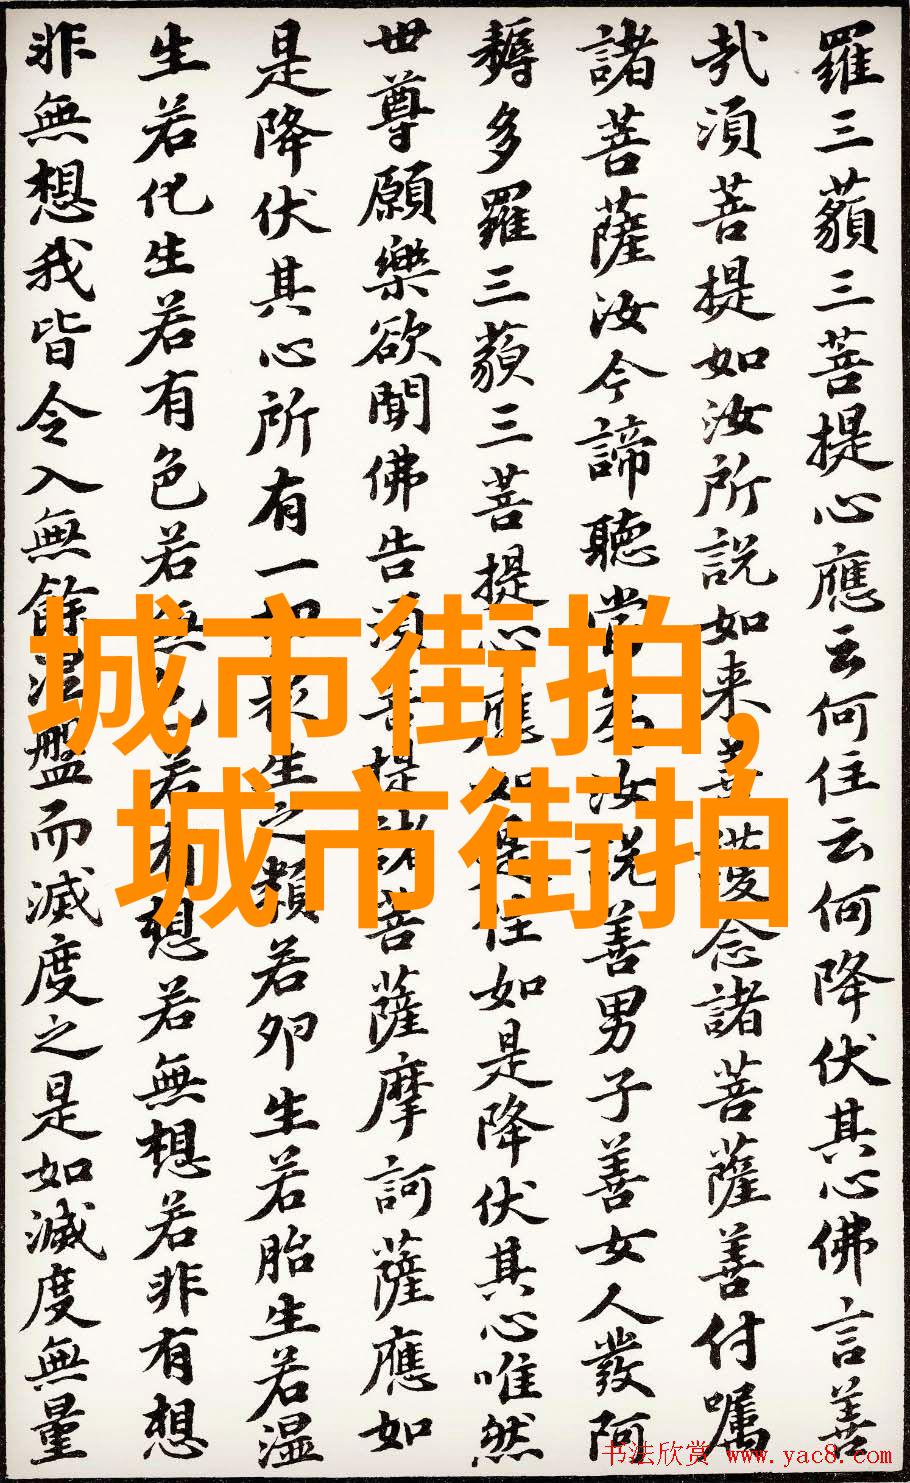 羅三藐三菩提心應云何住云何降伏其心佛言善
哉須菩提如汝所說如来善護念諸菩薩善付囑
諸菩薩汝今諦聽當為汝說善男子善女人發阿
耨多羅三藐三菩提心應如是住如是降伏其心唯然
世尊願樂欲聞佛告須菩提諸菩薩摩訶薩應如
是降伏其心所有一切衆生之類若卵生若胎生若湿
生若化生若有色若無色若有想若無想若非有想
非無想我皆令入無餘涅盤而滅度之是如滅度無量
城市街拍,
城市街拍
书法欣赏 www.yac8.com